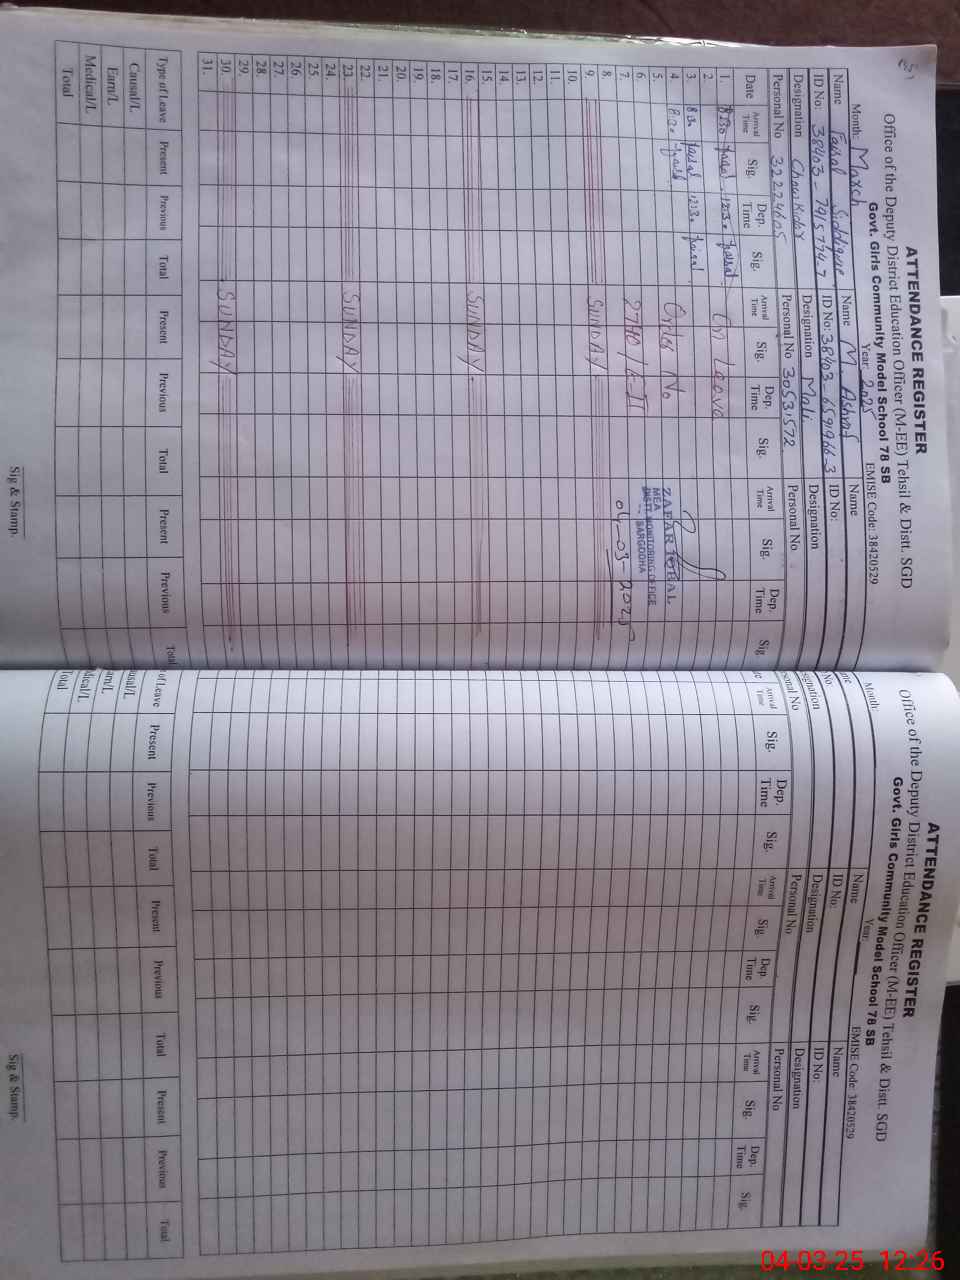 ATTENDANCE REGISTER
Office of the Deputy District Education Officer (M-EE) Tehsil & Distt. SGD
Govt. Girls Community Model School 78 SB
Month: March Year: 2025 EMISE Code: 38420529
Name Faisal Siddique Name M. Ashraf Name
ID No: 38403-7915794-7 ID No: 38403-6591966-3 ID No:
Designation Chowkidar Designation Mali Designation
Personal No 32224605 Personal No 30531572 Personal No
Date Arrival Time Sig. Dep. Time Sig. Arrival Time Sig. Dep. Time Sig. Arrival Time Sig. Dep. Time Sig.
1. 8:30 faisal 12:30 faisal On Leave
2.
3. 8:30 faisal 12:30 faisal
4. 8:30 faisal Order No
ZAFAR IQBAL
5.
MEA
DISTT. MONITORING OFFICE
SARGODHA
6. 2740/E-II
7. 04-03-2025
8.
9. SUNDAY
10.
11.
12.
13.
14.
15.
16. SUNDAY
17.
18.
19.
20.
21.
22.
23. SUNDAY
24.
25.
26.
27.
28.
29.
30. SUNDAY
31.
Type of Leave Present Previous Total Present Previous Total Present Previous Total
Causal/L
Earn/L
Medical/L
Total
Sig & Stamp.
ATTENDANCE REGISTER
Office of the Deputy District Education Officer (M-EE) Tehsil & Distt. SGD
Govt. Girls Community Model School 78 SB
Month: Year: EMISE Code: 38420529
me Name Name
No ID No: ID No:
signation Designation Designation
sonal No Personal No Personal No
e Arrival Time Sig. Dep. Time Sig. Arrival Time Sig. Dep. Time Sig. Arrival Time Sig. Dep. Time Sig.
of Leave Present Previous Total Present Previous Total Present Previous Total
usal/L
arn/L
dical/L
Total
Sig & Stamp.
04-03-25 12:26